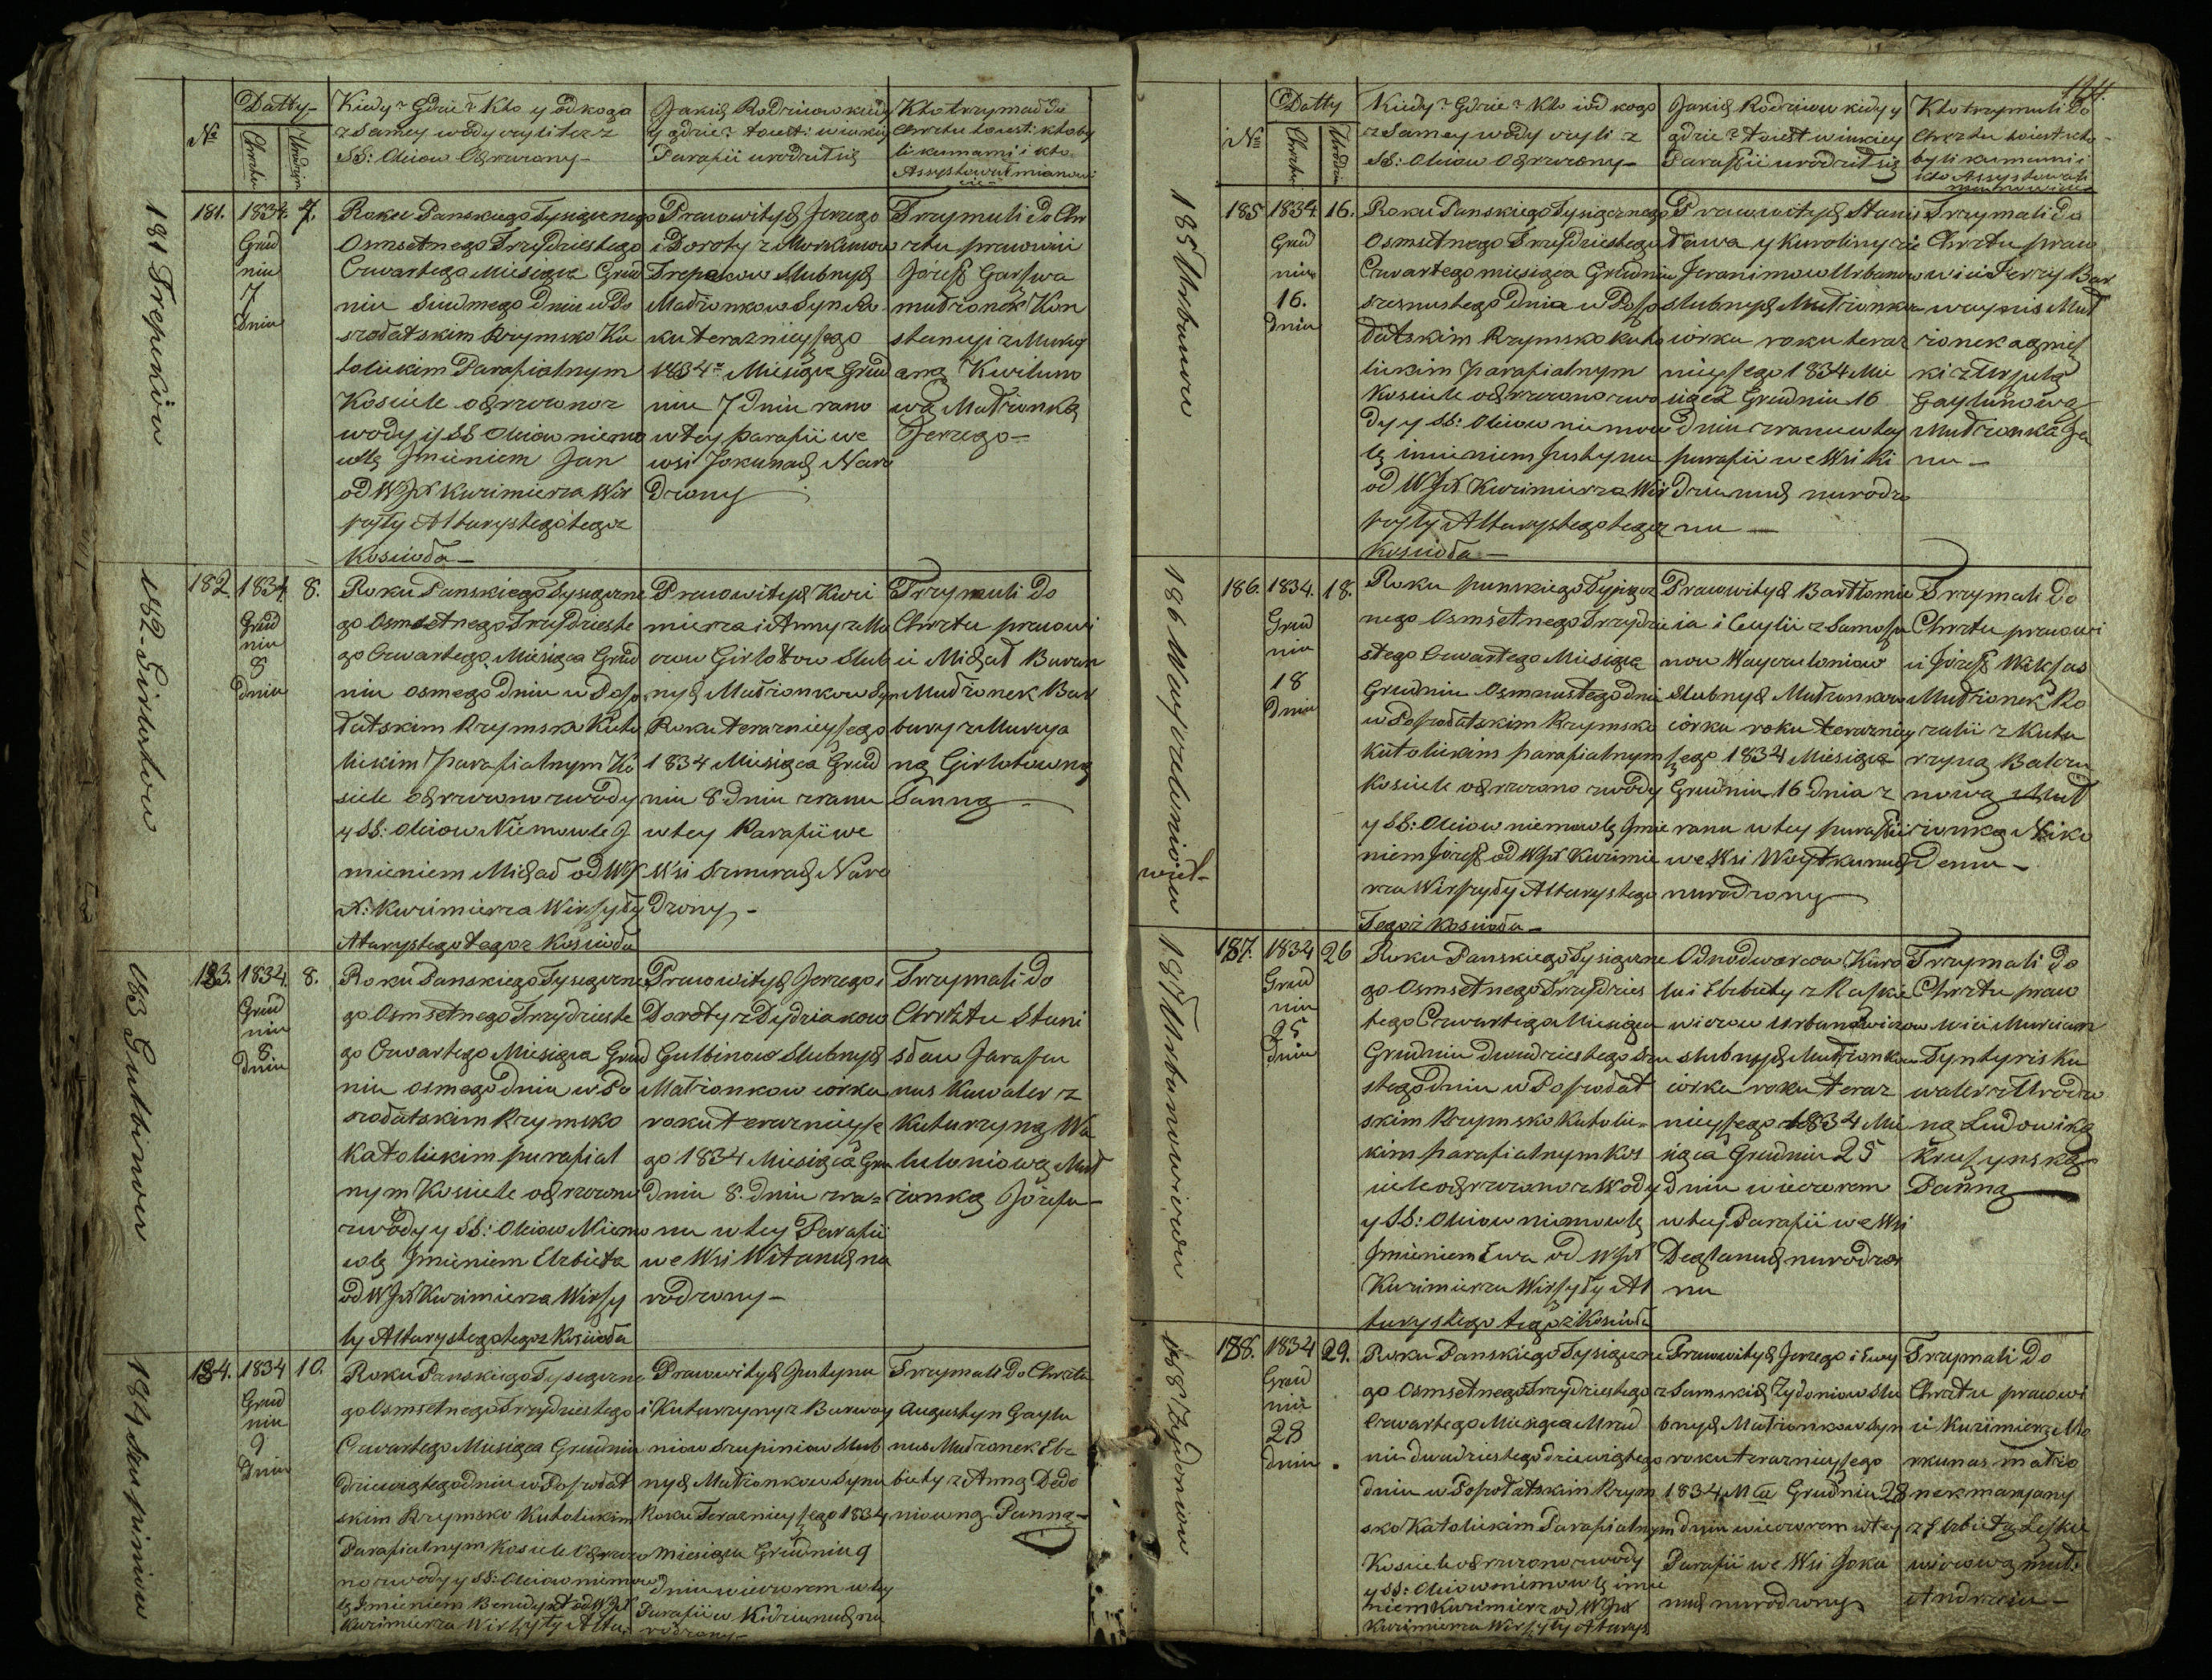 Datty
Kiedy? Gdzie? Kto y od kogo
Jakich Rodzicow kiedy
Kto trzymał do
№
Chrztu
Urodzin
z Samey wody czyli tez z
y gdzie? to iest: w iakiey
Chrztu to iest: kto by
SS: Oleiow Ochrzczony
Parafii urodził się
li kumami i kto
Assystował mianowi
cie
181 Trepekow
181. 1834. 7.
Grud
nia
7
dnia
Roku Panskiego Tysiącznego
Osmsetnego Trzydziestego
Czwartego Miesiąca Grud
nia Siudmego Dnia w Po
szołatskim Rzymsko Ka
tolickim Parafialnym
Kosciele ochrzczono z
wody y SS Oleiow niemo
wlę Jmieniem Jan
od WJX Kazimierza Wir
szyłły Altarystego tegoz
Koscioła
Prawowitych Jerzego
i Doroty z Morkunow
Trepekow Slubnych
Małzonkow Syn Ro
ku teraznieyszego
1834º Miesiąca Grud
nia 7 Dnia rano
w tey parafii we
wsi Jokunach Naro
dzony
Trzymali do Chr
ztu prawowici
Jozeff Garszwa
małzonek Kon
stancyi z Mary
aną Kwiluno
wą Małzonką
Jerzego
182 Girlotow
182. 1834. 8.
Grud
nia
8
dnia
Roku Panskiego Tysiączne
go Osmsetnego Trzydzieste
go Czwartego Miesiąca Grud
nia osmego dnia w Poszo
łatskim Rzymsko Kato
lickim Parafialnym Ko
sciele ochrzczono z wody
y SS: Oleiow Niemowle J
mieniem Michał od WJ
X: Kazimierza Wirszyłły
Altarystego tegoz Koscioła
Prawowitych Kazi
mierza i Anny z Mo
Girlotow Slub
nych Małzonkow Syn
Roku teraznieyszego
1834 Miesiąca Grud
nia 8 dnia zrana
w tey Parafii we
Wsi Szmurach Naro
dzony
Trzymali do
Chrztu prawowi
ci Michał Buran
Małzonek Bar
bary z Marya
ną Girlotowną
Panną
183 Gulbinow
183. 1834. 8.
Grud
nia
8
dnia
Roku Panskiego Tysiączne
go Osmsetnego Trzydzieste
go Czwartego Miesiąca Grud
nia osmego dnia w Po
szołatskim Rzymsko
Katolickim parafial
nym Kosciele ochrzczono
z wody y SS: Oleiow Niemo
wlę Jmieniem Elzbieta
od WJX Kazimierza Wirszy
ły Altarystego tegoz Kosciola
Prawowitych Jerzego i
Doroty z Dydziakow
Gulbinow Slubnych
Małzonkow corka
roku terazniejsze
go 1834 Miesiąca Gru
dnia 8. dnia zra=
na w tey Parafii
we Wsi Witanach na
rodzony
Trzymali do
Chrztu Stani
sław Jaraszu
nas Kawaler z
Katarzyną Wa
luloniową Mał
zonką Józefa
184 Szupiniow
184. 1834 10.
Grud
nia
9
dnia
Roku Panskiego Tysiączne
go Osmsetnego Trzydziestego
Czwartego Miesiąca Grudnia
dziewiątego dnia w Poszołat
skim Rzymsko Katolickim
Parafialnym Kosciele Ochrzczo
no z wody y SS: Oleiow niemow
lę Jmieniem Benedykt od WJX
Kazimierza Wirszyłły Alta:
Prawowitych Justyna
i Katarzyny z Barwoy
niow Szupiniow Slub
nych Małzonkow Syna
Roku Terazniejszego 1834
Miesiąca Grudnia 9
dnia wieczorem w tey
Parafii w Kidziunach na
rodzony
Trzymali Do Chrztu
Augustyn Gaylu
nas Małzonek Elz
biety z Anną Dedo
niowną Panną
Datty
Kiedy? Gdzie? Kto i od kogo
Jakich Rodzicow kiedy y
Kto trzymali do
№
Chrztu
Urodzin
z Samey wody czyli z
gdzie? to iest w iakiey
Chrztu to iest: kto
SS: Oleiow Ochrzczony
Parafii urodził się
byli kumami i
kto Assystowali
mianowicie
185 Urbanow
185 1834. 16.
Grud
nia
16.
dnia
Roku Panskiego Tysiącznego
Osmsetnego Trzydziestego
Czwartego miesiąca Grudnia
szesnastego dnia w Poszo
łatskim Rzymsko kato
lickim parafialnym
Kosciele ochrzczono z wo
dy y SS: Oleiow niemow
lę imieniem Justyna
od WJX Kazimierza Wir
szyłły Altarystego tegoz
Kosciola
Prawowitych Stanis
ława y Karoliny z
Jeronimow Urbanow
slubnych Małzonkow
corka roku teraz
nieyszego 1834 Mie
siąca Grudnia 16
dnia zrana w tey
parafii we Wsi Ki
dziunach narodzo
na
Trzymali do
Chrztu prawo
wici Jerzy Bar
woynis Mał
zonek agniesz
ki z Urszulą
Gaylunową
Małzonką Ja
na
186 Wayczeloniow
186. 1834. 18.
Grud
nia
18
dnia
Roku panskiego Tysiącz
nego Osmsetnego Trzydzie
stego Czwartego Miesiąca
Grudnia Osmnastego dnia
w Poszołatskim Rzymsko
katolickim parafialnym
Kosciele ochrzczono z wody
y SS: Oleiow niemowlę Jmie
niem Józeff od WJX Kazimie
rza Wirszyłły Altarystego
Tegoz kosciola
Prawowitych Bartłomie
ia i Cecylii z Samosza
now Wayczeloniow
Slubnych Małzonkow
corka roku terazniey
szego 1834 Miesiąca
Grudnia 16 dnia z
rana w tey parafii
we Wsi Woytkunach
narodzony
Trzymali do
Chrztu prawowi
ci Józeff Wikszas
Małzonek Ro
zalii z Kata
rzyną Balczu
nową Mał
zonką Niko
dema
187 Urbanowiczow
187. 1834 26
Grud
nia
25
dnia
Roku Panskiego Tysiączne
go Osmsetnego Trzydzies
tego Czwartego Miesiąca
Grudnia dwudziestego szu
stego dnia w Poszołat
skim Rzymsko Katolic
kim parafialnym Kos
ciele ochrzczono z Wody
y SS: Oleiow niemowlę
Jmieniem Ewa od WJX
Kazimierza Wirszyłły Al
tarystego tegoz Kosciola
Odnodworcow Karo
la i Elzbiety z Raszkie
wiczow Urbanowiczow
slubnych Małzonkow
corka roku teraz
nieyszego 1834 Mie
siąca Grudnia 25
dnia wieczorem
w tej Parafii we Wsi
Degłanach narodzo
na
Trzymali do
Chrztu prawo
wici Marician
Syntyris Ka
waler z Urodzo
ną Ludowiką
Kruszynską
Panną
188 Zydoniow
188. 1834 29.
Grud
nia
28
dnia
Roku Panskiego Tysiączne
go Osmsetnego Trzydziestego
Czwartego Miesiąca Grud
nia dwudziestego dziewiątego
dnia w Poszołatskim Rzym
sko Katolickim Parafialnym
Kosciele ochrzczono z wody
y SS: Oleiow niemowlę imie
niem Kazimierz od WJX
Kazimierza Wirszyłły Altarys
Prawowitych Jerzego i Ewy
z Samskich Zydoniow Slu
bnych Małzonkow Syn
roku terazniejszego
1834 M Grudnia 28
dnia wieczorem w tey
Parafii we Wsi Joku
nach narodzony
Trzymali do
Chrztu prawowi
ci Kazimierz Mo
rkunas małzo
nek maryany
z Elzbietą Leszke
wiczową mał:
Andrzeia